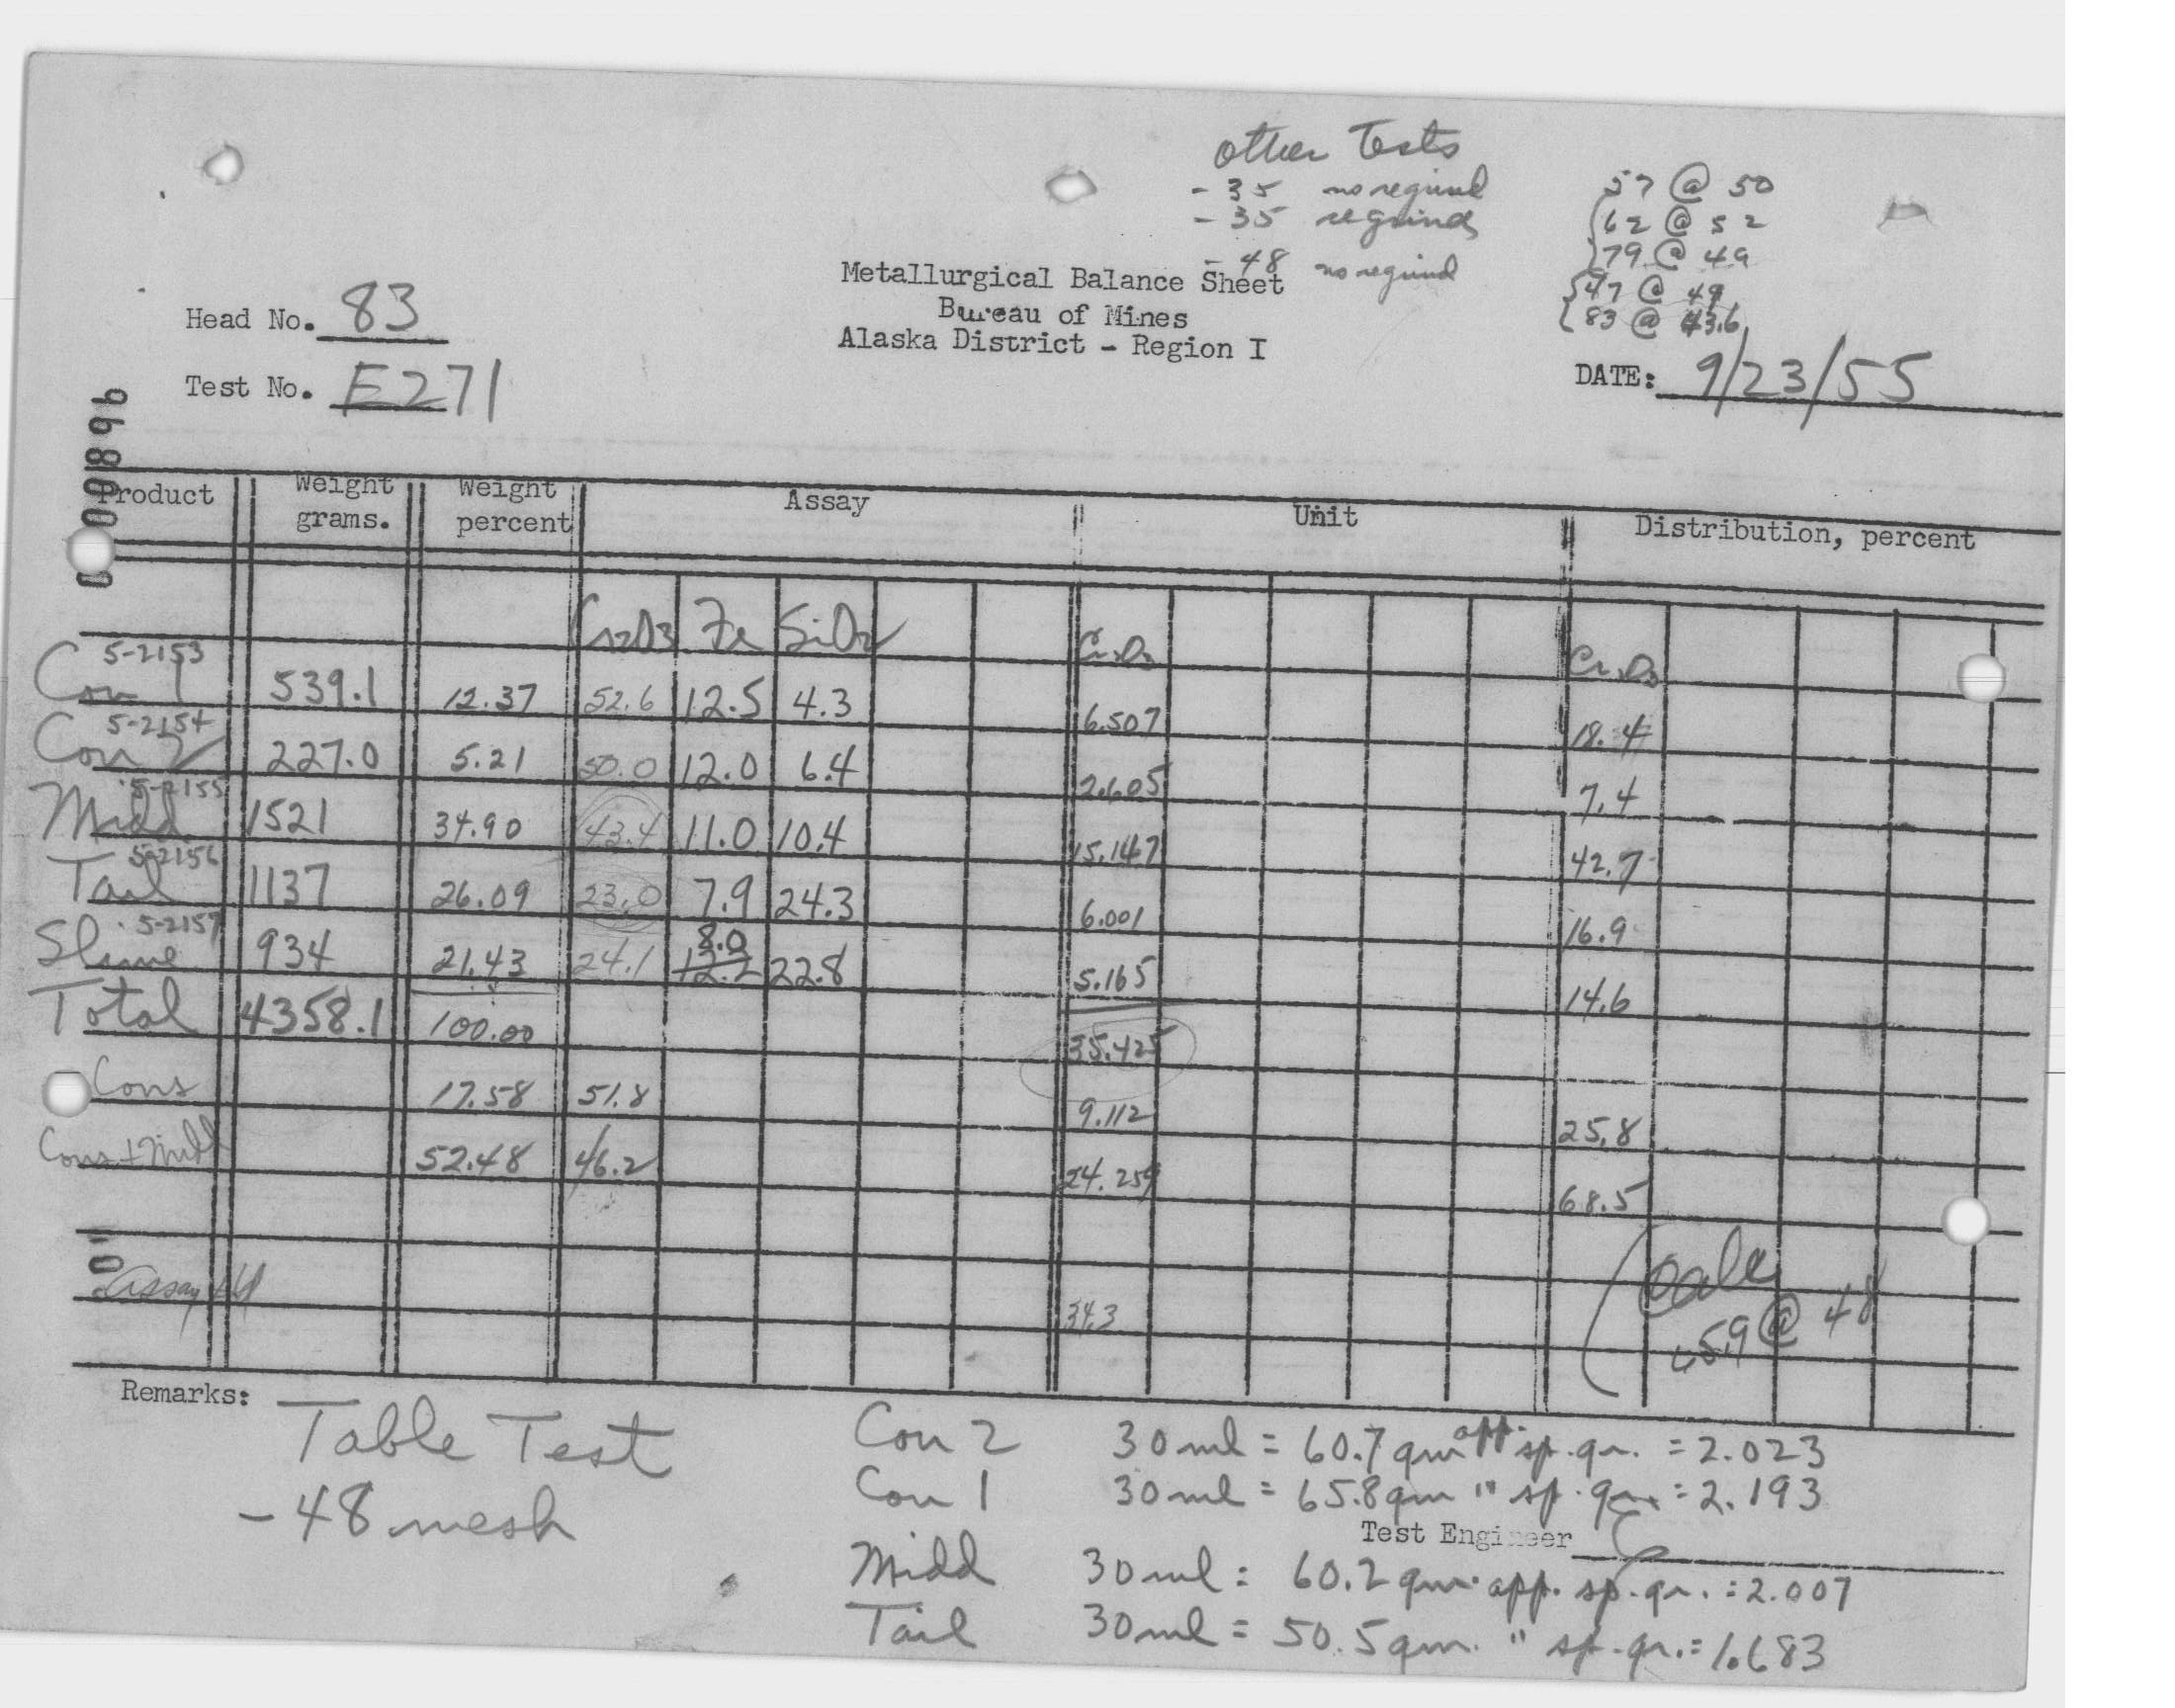 other Tests
- 35 no regrind 57 @ 50
- 35 regrind 62 @ 52
79 @ 49
- 48 no regrind 47 @ 49
83 @ 43.6
Metallurgical Balance Sheet
Bureau of Mines
Alaska District - Region I
Head No. 83
Test No. E271
DATE: 9/23/55
Product Weight grams. Weight percent Assay Unit Distribution, percent
Cr2O3 Fe SiO2 Cr2O3 Cr2O3
5-2153
Con 1 539.1 12.37 52.6 12.5 4.3 6.507 18.4
5-2154
Con 2 227.0 5.21 50.0 12.0 6.4 2.605 7.4
5-2155
Midd 1521 34.90 43.4 11.0 10.4 15.147 42.7
5-2156
Tail 1137 26.09 23.0 7.9 24.3 6.001 16.9
5-2157
8.0
Slime 934 21.43 24.1 12.2 22.8 5.165 14.6
Total 4358.1 100.00 35.425
Cons 17.58 51.8 9.112 25.8
Cons + Midd 52.48 46.2 24.259 68.5
Assay Hd 34.3
Calc
59 @ 48
Remarks: Table Test
- 48 mesh
Con 2 30 ml = 60.7 gm app. sp. gr. = 2.023
Con 1 30 ml = 65.8 gm " sp. gr. = 2.193
Test Engineer
Midd 30 ml = 60.2 gm. app. sp. gr. = 2.007
Tail 30 ml = 50.5 gm. " sp. gr. = 1.683